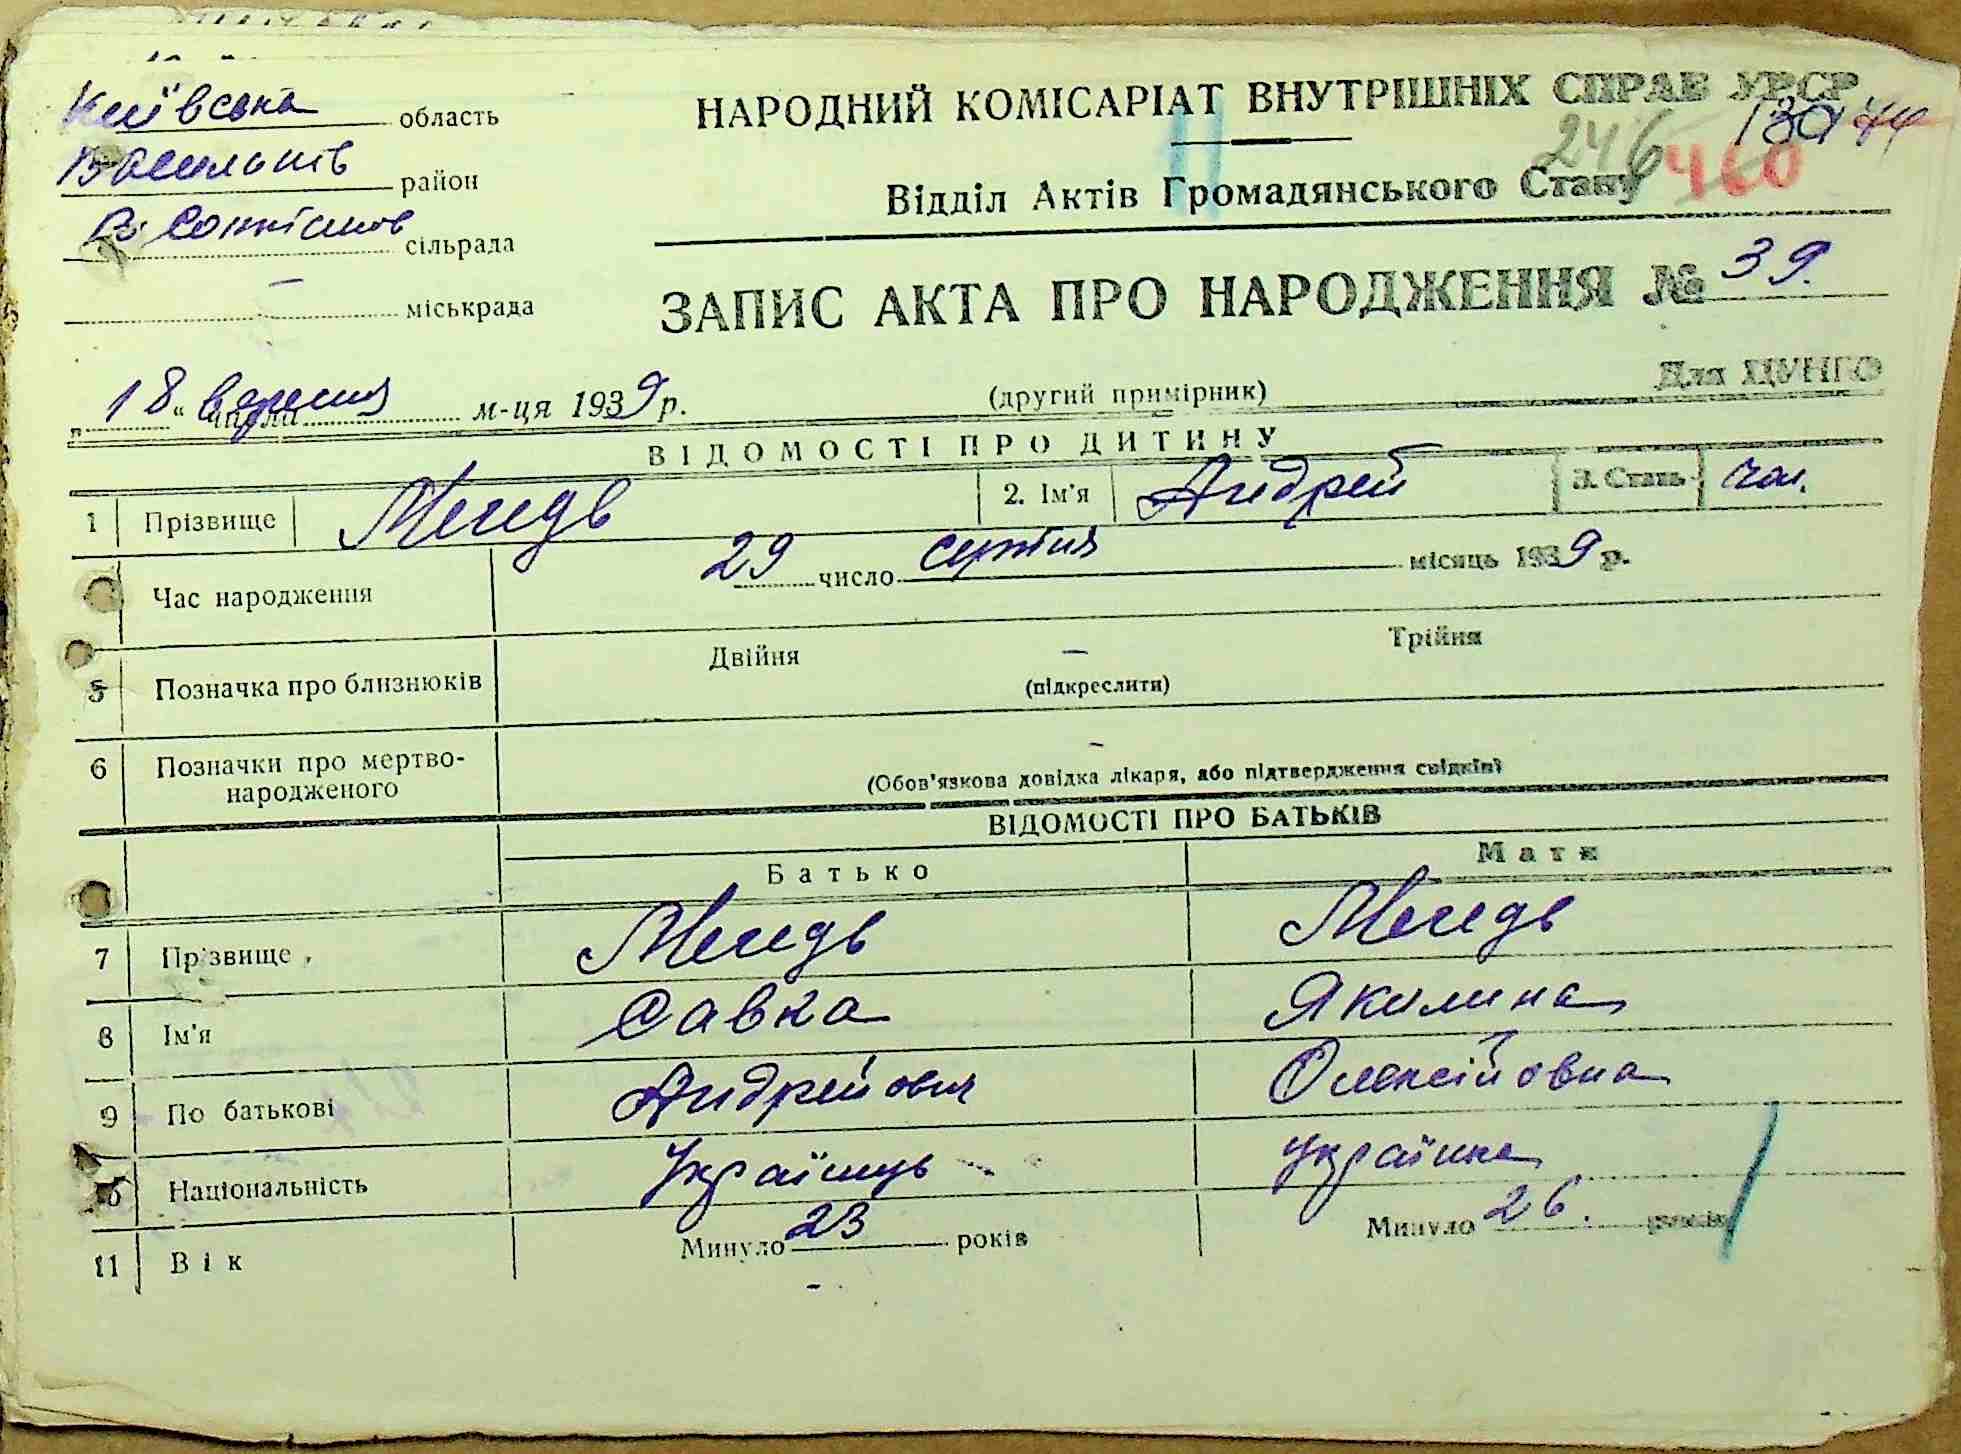 Київська область
Васильків район
сільрада
міськрада
НАРОДНИЙ КОМІСАРІАТ ВНУТРІШНІХ СПРАВ УРСР
246 460
Відділ Актів Громадянського Стану
ЗАПИС АКТА ПРО НАРОДЖЕННЯ № 39.
„18“ числа вересня м-ця 1939 р.
(другий примірник)
Для ЦУНГО
ВІДОМОСТІ ПРО ДИТИНУ
1 Прізвище 2. Ім'я Андрей 3. Стать чол.
Час народження 29 число серпня місяць 1939 р.
5 Позначка про близнюків Двійня — Трійня
(підкреслити)
6 Позначки про мертво-
народженого –
(Обов'язкова довідка лікаря, або підтвердження свідків)
ВІДОМОСТІ ПРО БАТЬКІВ
Батько Мати
7 Прізвище
8 Ім'я Савка Якилина
9 По батькові Андрейович Олексійовна
10 Національність Українець Українка
11 Вік Минуло 23 років Минуло 26. років